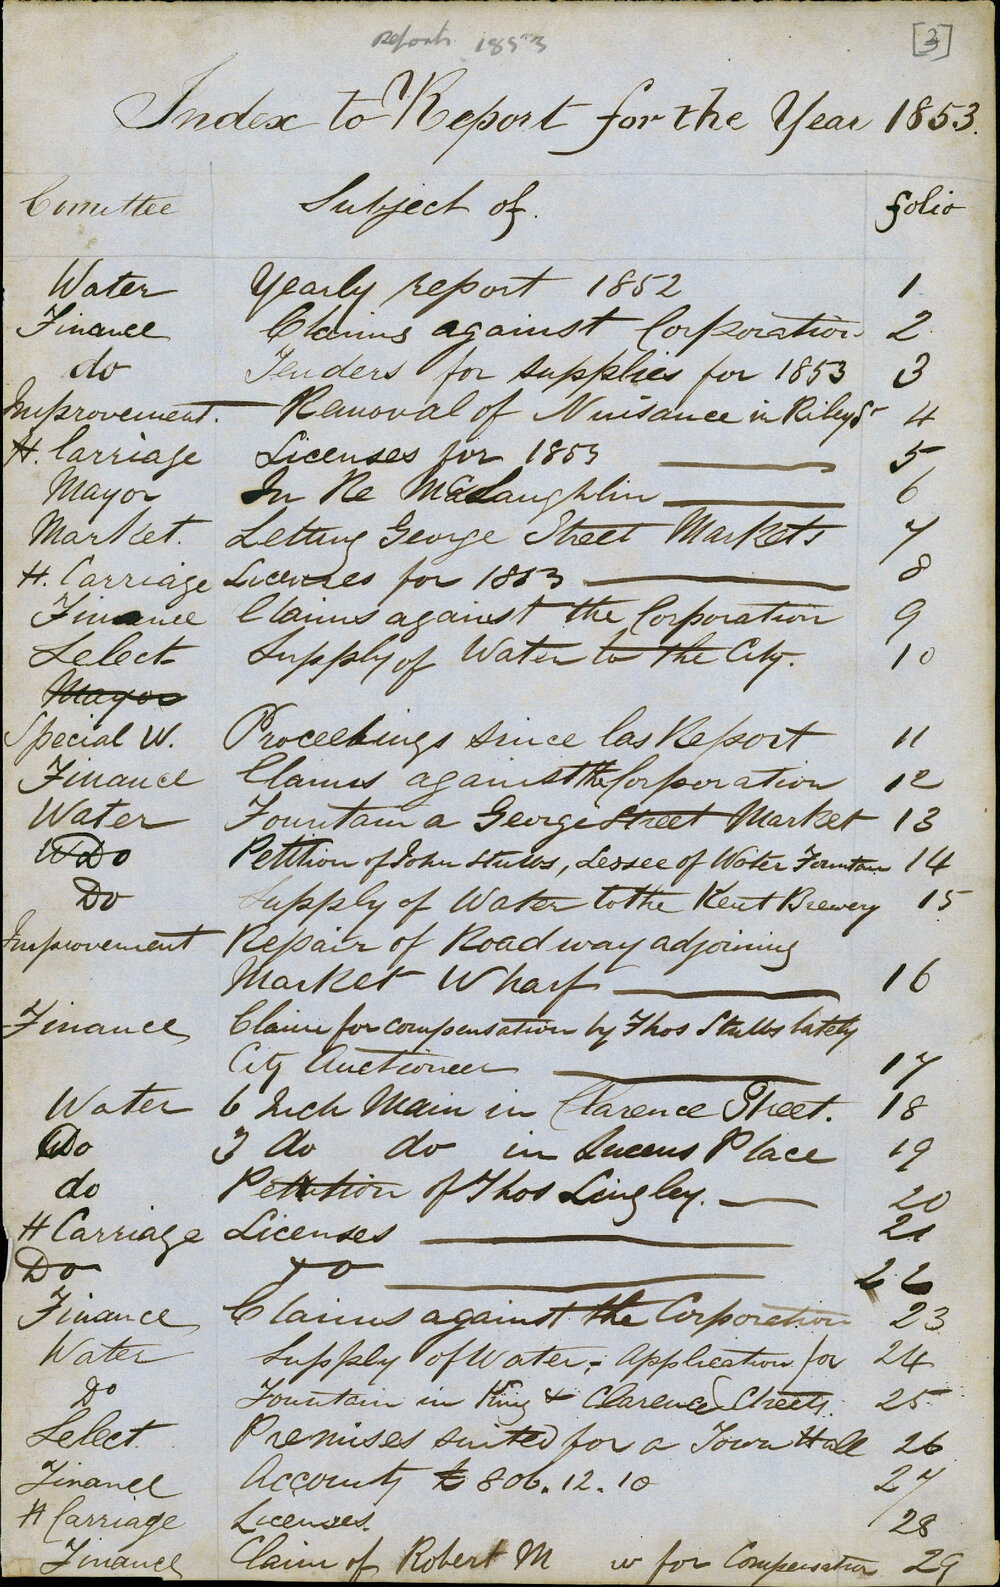 Reports 1853
[3]
Index to Report for the Year 1853.
Committee Subject of. folio
Water Yearly report 1852 1
Finance Claims against Corporation 2
do Tenders for supplies for 1853 3
Improvement. Removal of Nuisance in Riley St 4
H. Carriage Licenses for 1853 5
Mayor In Re McLaughlin 6
Market. Letting George Street Markets 7
H. Carriage Licenses for 1853 8
Finance Claims against the Corporation 9
Select Supply of Water to the City. 10
Mayor
Special W. Proceedings since las Report 11
Finance Claims against the Corporation 12
Water Fountain a George Street Market 13
Do Petition of John Stubbs, Lessee of Water Fountain 14
Do Supply of Water to the Kent Brewery 15
Improvement Repair of Roadway adjoining
Market Wharf 16
Finance Claim for compensation by Thos Stubbs lately
City Auctioneer 17
Water 6 Inch Main in Clarence Street. 18
Do 3 do do in Queens Place 19
do Petition of Thos Lingley. 20
H Carriage Licenses 21
Do Do 22
Finance Claims against the Corporation 23
Water Supply of Water; Application for 24
Do Fountain in King & Clarence Streets. 25
Select. Premises suited for a Town Hall 26
Finance Accounts £806.12.10 27
H Carriage Licenses. 28
Finance Claim of Robert M w for Compensation 29